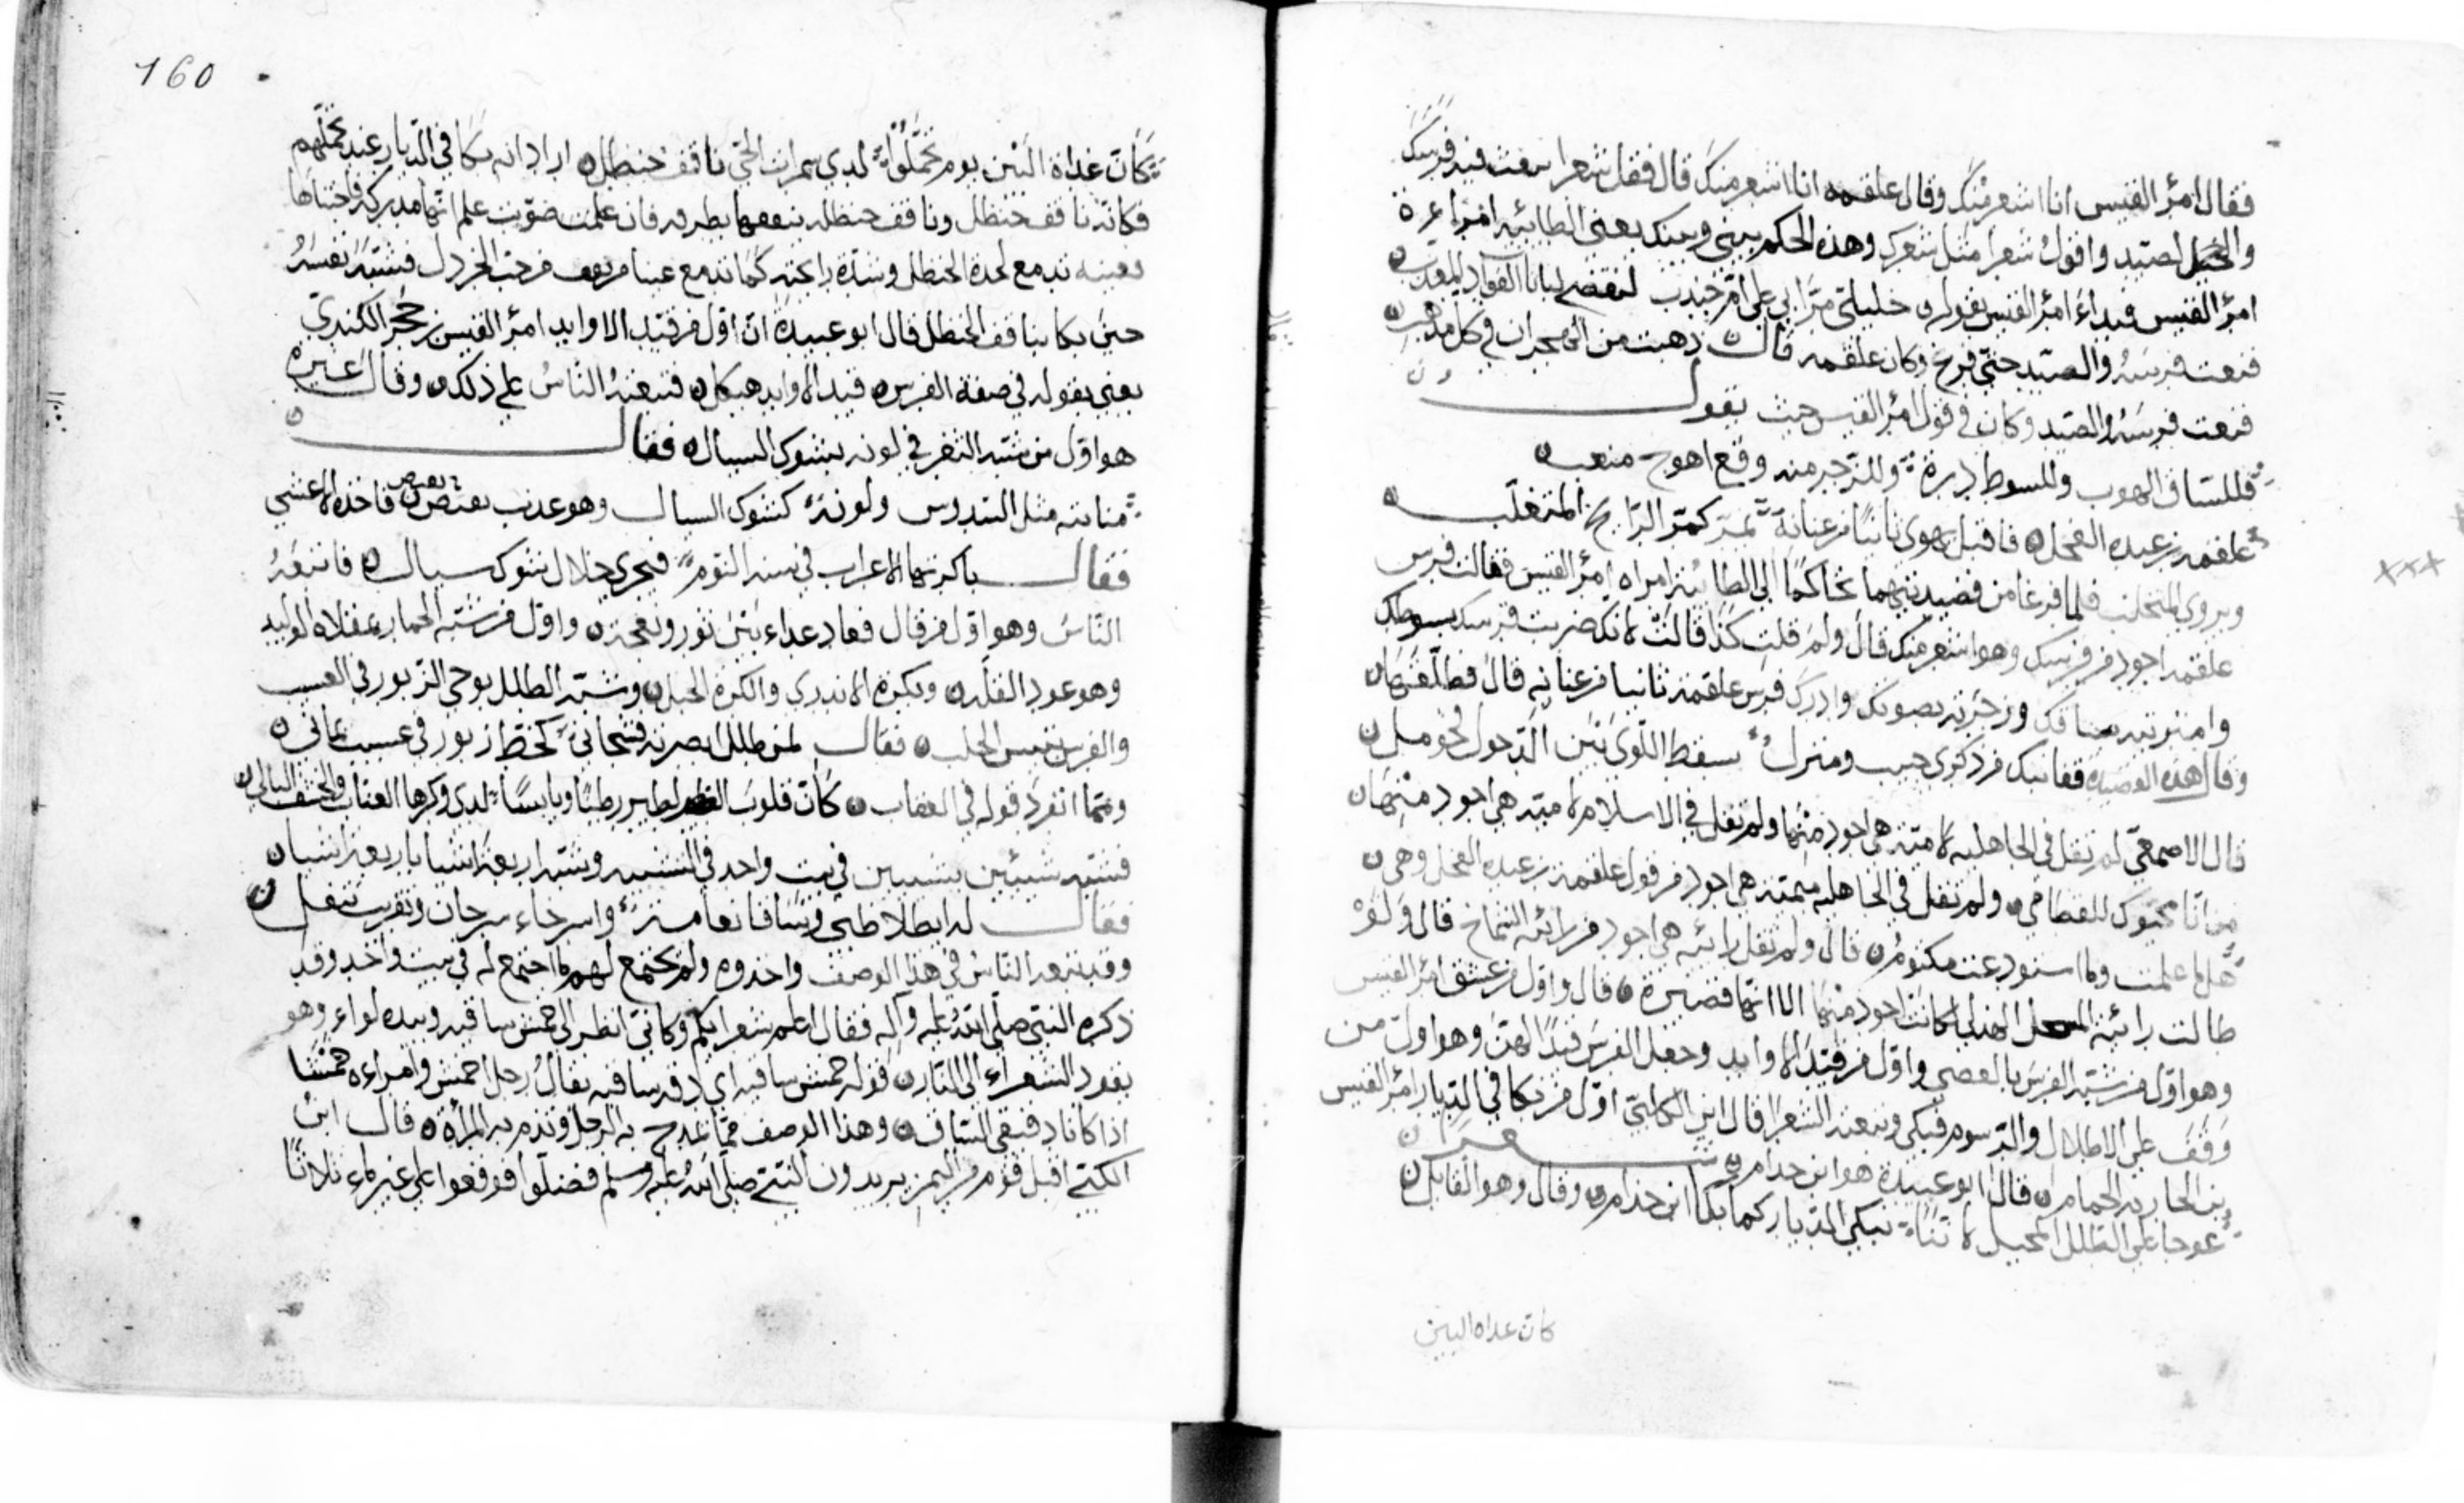 فقال امرؤ القيس انا اشعر منك وقال علقمه انا اشعر منك قال فقل شعرا تنعت فيه فرسك
والصيد واقول شعرا مثل شعرك وهذه الحكم بيني وبينك يعني الطائيه امراءة
امرؤ القيس فبداء امرؤ القيس بقوله خليلي مرا بي على ام جندب لنقضي لبانات الفؤاد المعذب
فنعت فرسه والصيد حتى فرغ وكان علقمه قال ذهبت من الهجران في كل مذهب
فنعت فرسه والصيد وكان في قول امرؤ القيس حيث يقول
فللساق الهوب وللسوط درة وللزجر منه وقع اهوج منعب
علقمه بن عبده الفحل فاقبل يهوي ثانيا من عنانه يمر كمر الرايح المتحلب
ويروى المتحلب فلما فرغا من قصيدتيهما تحاكما الى الطائيه امراه امرؤ القيس فقالت فرس
علقمه اجود من فرسك وهو اشعر منك قال ولم قلت كذا قالت لانك ضربت فرسك بسوطك
وامتريته بساقك وزجرته بصوتك وادرك فرس علقمه ثانيا من عنانه قال فطلقها
وقال هذه القصيده قفا نبك من ذكرى حبيب ومنزل بسقط اللوى بين الدخول فحومل
قال الاصمعي لم يقل في الجاهليه لاميه هي اجود منها ولم يقل في الاسلام لاميه هي اجود منها
من انا محيوك للقطامي ولم يقل في الجاهليه ميميه هي اجود من قول علقمه بن عبده الفحل وهي
هل ما علمت وما استودعت مكتوم قال ولم يقل رائيه هي اجود من رائيه الشماخ قال ولو
طالت رائيه المنخل الهذلي لكانت اجود منها الا انها قصيرة قال واول من عشق امرؤ القيس
وهو اول من شبه الفرس بالعصي واول من قيد الاوابد وجعل الفرس قيدا لهن وهو اول من
وقف على الاطلال والرسوم فبكى وتبعته الشعرا قال ابن الكلبي اول من بكا في الديار امرؤ القيس
بن الحاريه الحمام قال ابو عبيدة هو ابن خدام شعر
عوجا على الطلل المحيل لاننا نبكي الديار كما بكا ابن خذام وقال وهو القايل
كان غداه البين
160
كان غداة البين يوم تحملوا لدي سمرات الحي ناقف حنظل اراد انه بكا في الديار عند تحملهم
فكانه ناقف حنظل وناقف حنظله ينقفها بظفره فان علمت صوتت علم انها مدركه فاجتناها
فعينه تدمع لحدة الحنظل وشدة رائحته كما تدمع عينا من يدوف حب الخردل فشبه نفسه
حين بكا بناقف الحنظل قال ابو عبيدة ان اول من قيد الاوابد امرؤ القيس بن حجر الكندي
يعني بقوله في صفة الفرس قيد الاوابد هيكل فتبعه الناس على ذلك وقال غيره
هو اول من شبه الثغر في لونه بشوك السيال فقال
منابته مثل السدوس ولونه كشوك السيال وهو عذب يفيص فاخذه الاعشى
فقال باكرتها الاعراب في سنه النوم فتجري خلال شوك سيال فاتبعه
الناس وهو اول من قال فعاد عداء بين ثور ونعجة واول من شبه الحمار بمقلاه الوليد
وهو عود القله وبكره الاندري والكرة الحبل وشبه الطلل بوحي الزبور في العسيب
والفرس بتيس الحلب فقال لمن طلل ابصرته فشجاني كخط زبور في عسيب يماني
ومما انفرد قوله في العقاب كان قلوب الطير رطبا ويابسا لدي وكرها العناب والحشف البالي
فشبه شيئين بشيئين في بيت واحد في التشبيه وشبه اربعة اشيا باربعة اشيا
فقال له ايطلا ظبي وساقا نعامة وارخاء سرحان وتقريب تتفل
وقد تبعه الناس في هذا الوصف واخذوه ولم يجتمع لهم ما اجتمع له في بيت واحد وقد
ذكره النبي صلى الله عليه وآله فقال اعلم شعرايكم وكاني انظر الى حمش ساقيه وبيده لواء وهو
يقود الشعراء الى النار قوله حمش ساقيه اي دقه ساقيه يقال رجل احمش وامراءه حمشا
اذا كانا دقيقي الساق وهذا الوصف مما يمدح به الرجل وتذم به المرأة قال ابن
الكلبي اقبل قوم من اليمن يريدون النبي صلى الله عليه وسلم فضلوا فوقعوا على غير ماء ثلاثا